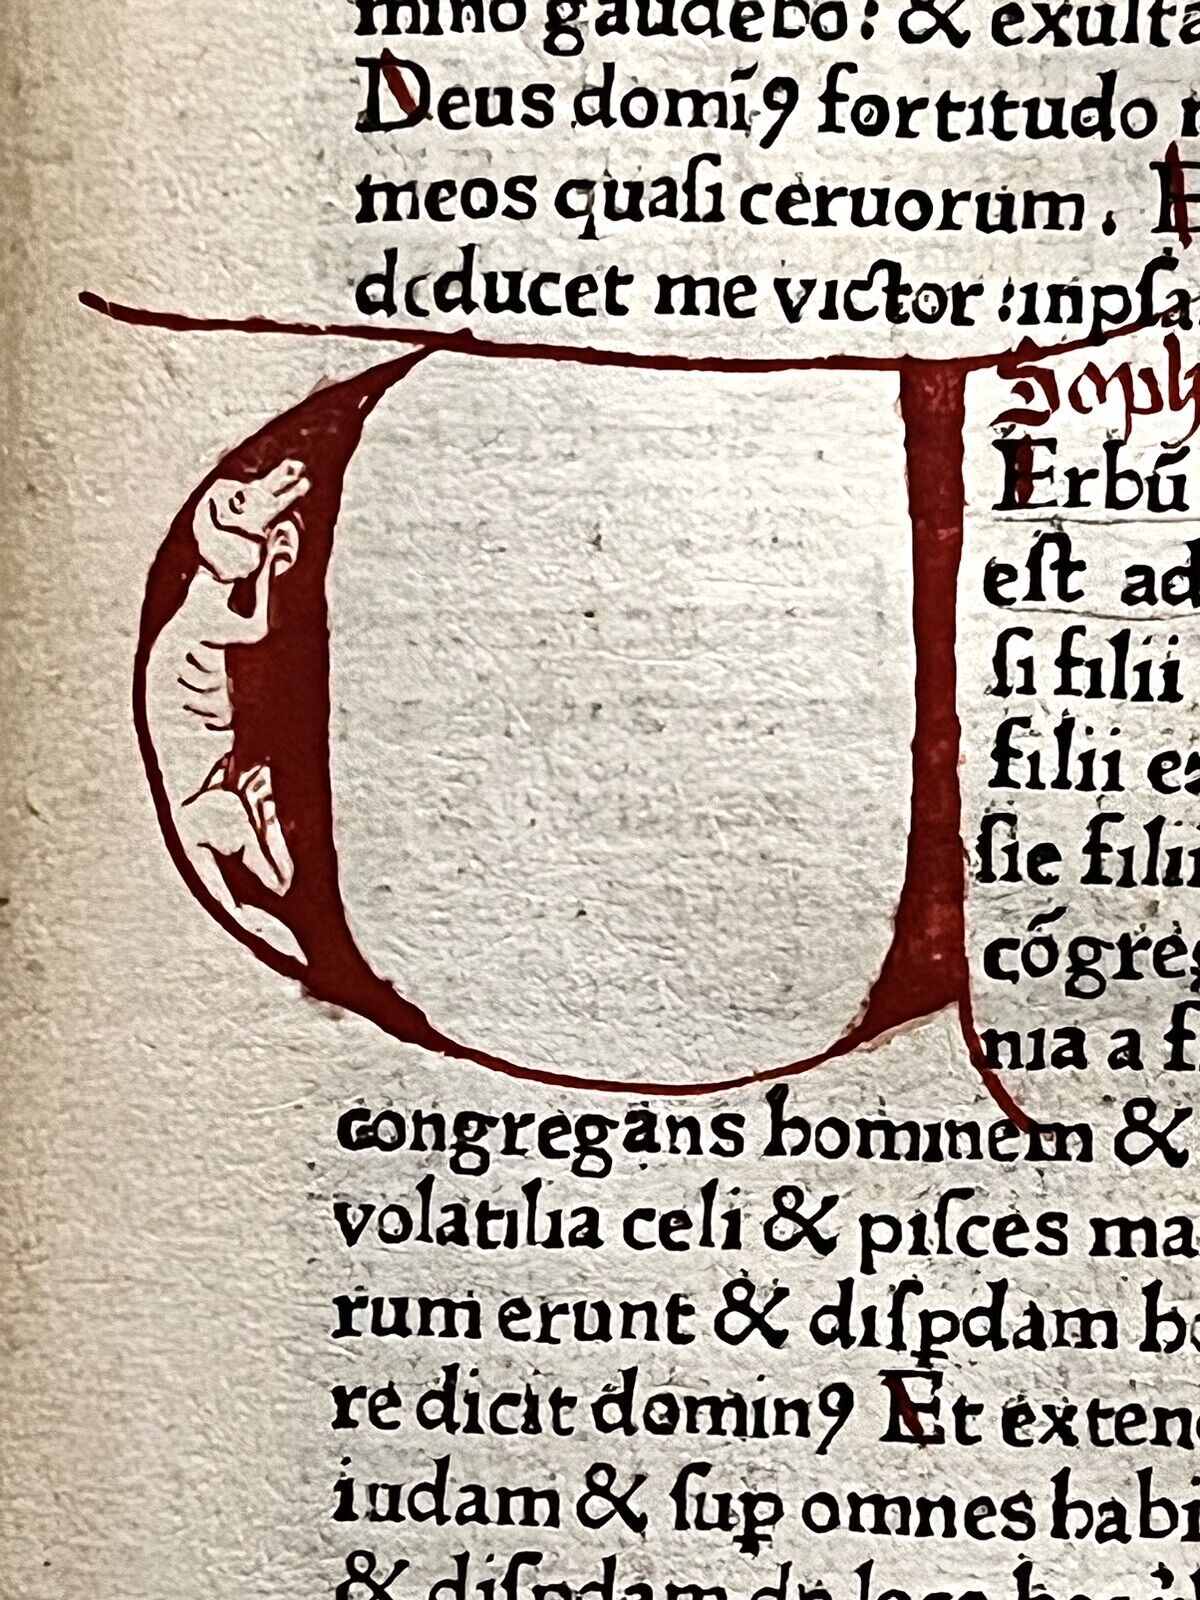 mino gaudebo: & exulta
Deus domĩꝯ fortitudo
meos quaſi ceruorum. E
deducet me victor :inpſa
Soph
V
Erbũ
eſt ad
ſi filii
filii
ſie filii
cõgreg
nia a f
congregans hominem &
volatilia celi & piſces ma
rum erunt & diſꝑdam ho
re dicit dominꝯ Et exten
iudam & ſuꝑ omnes habi
& diſꝑdam de loco hoc